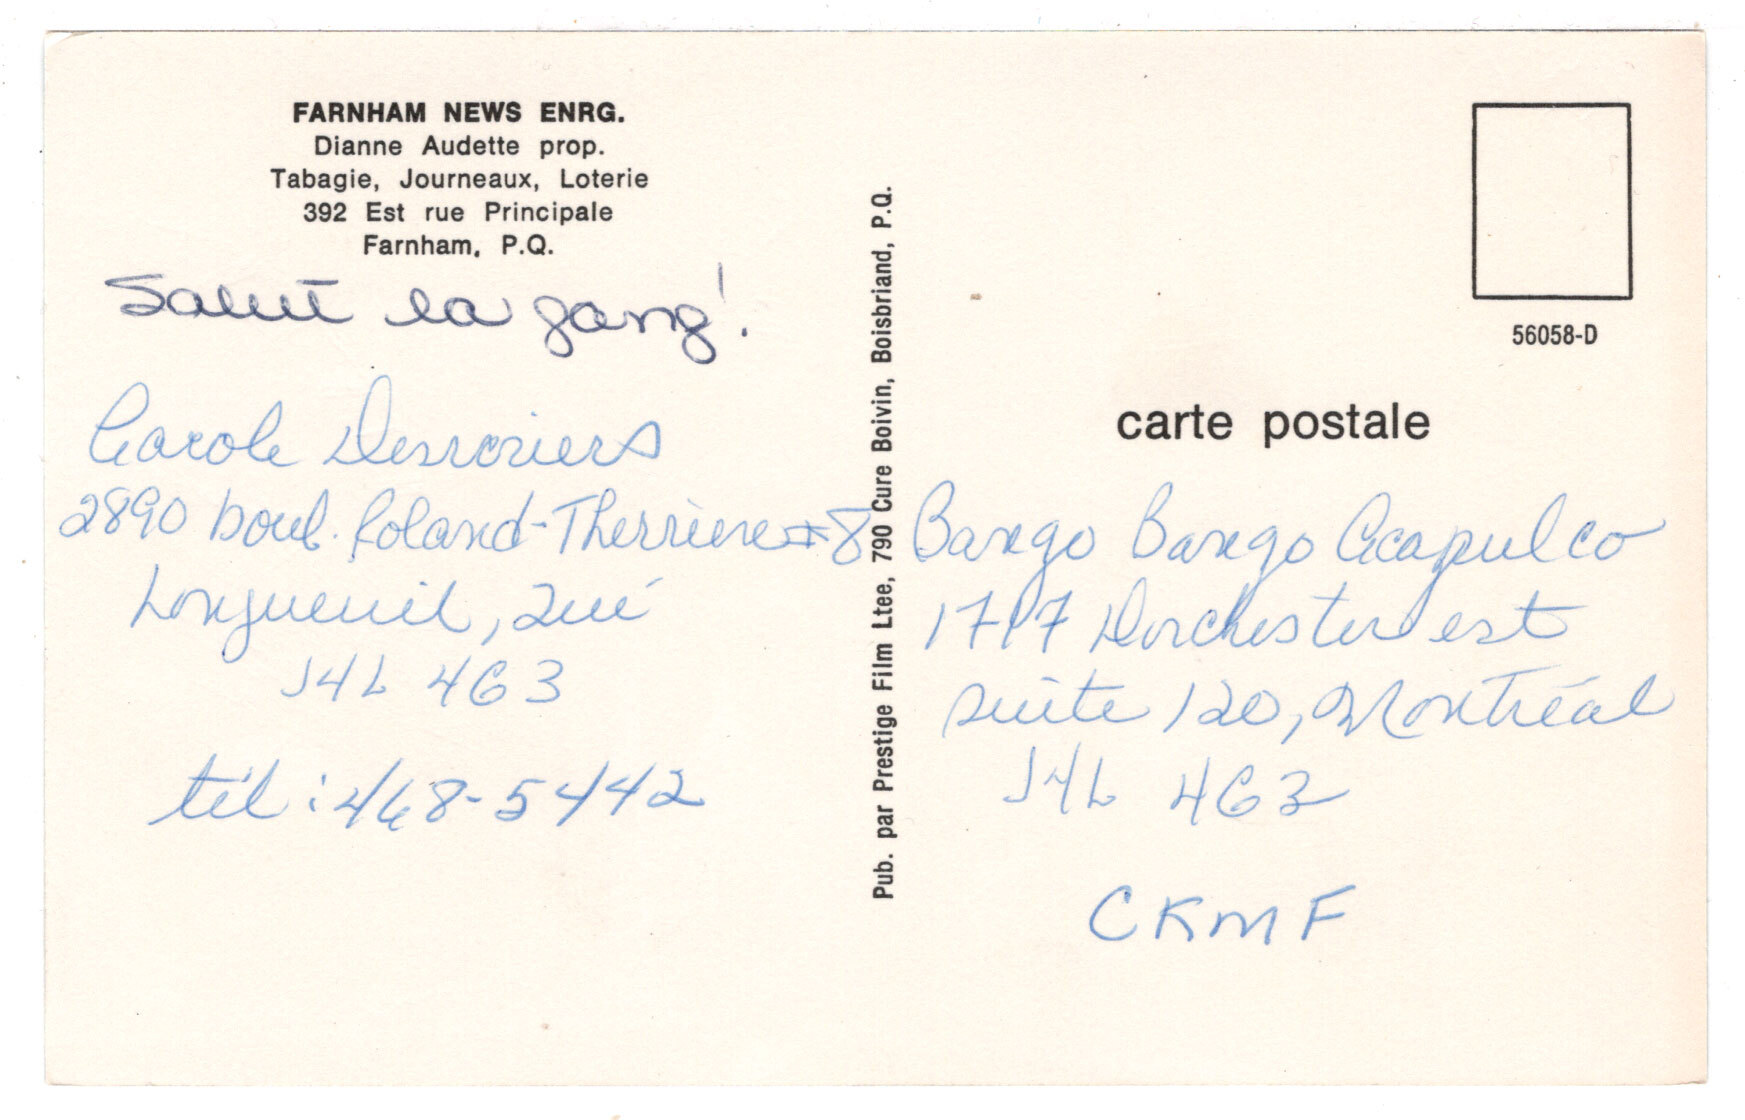 FARNHAM NEWS ENRG.
Dianne Audette prop.
Tabagie, Journeaux, Loterie
392 Est rue Principale
Farnham, P.Q.
Salut la gang!
Carole Desrosiers
2890 boul. Roland-Therriene #8
Longueuil, Qué
J4L 4G3
tél: 468-5442
Pub. par Prestige Film Ltee, 790 Cure Boivin, Boisbriand, P.Q.
56058-D
carte postale
Bango Bango Acapulco
1717 Dorchester est
suite 120, Montréal
J4L 4G3
CKMF